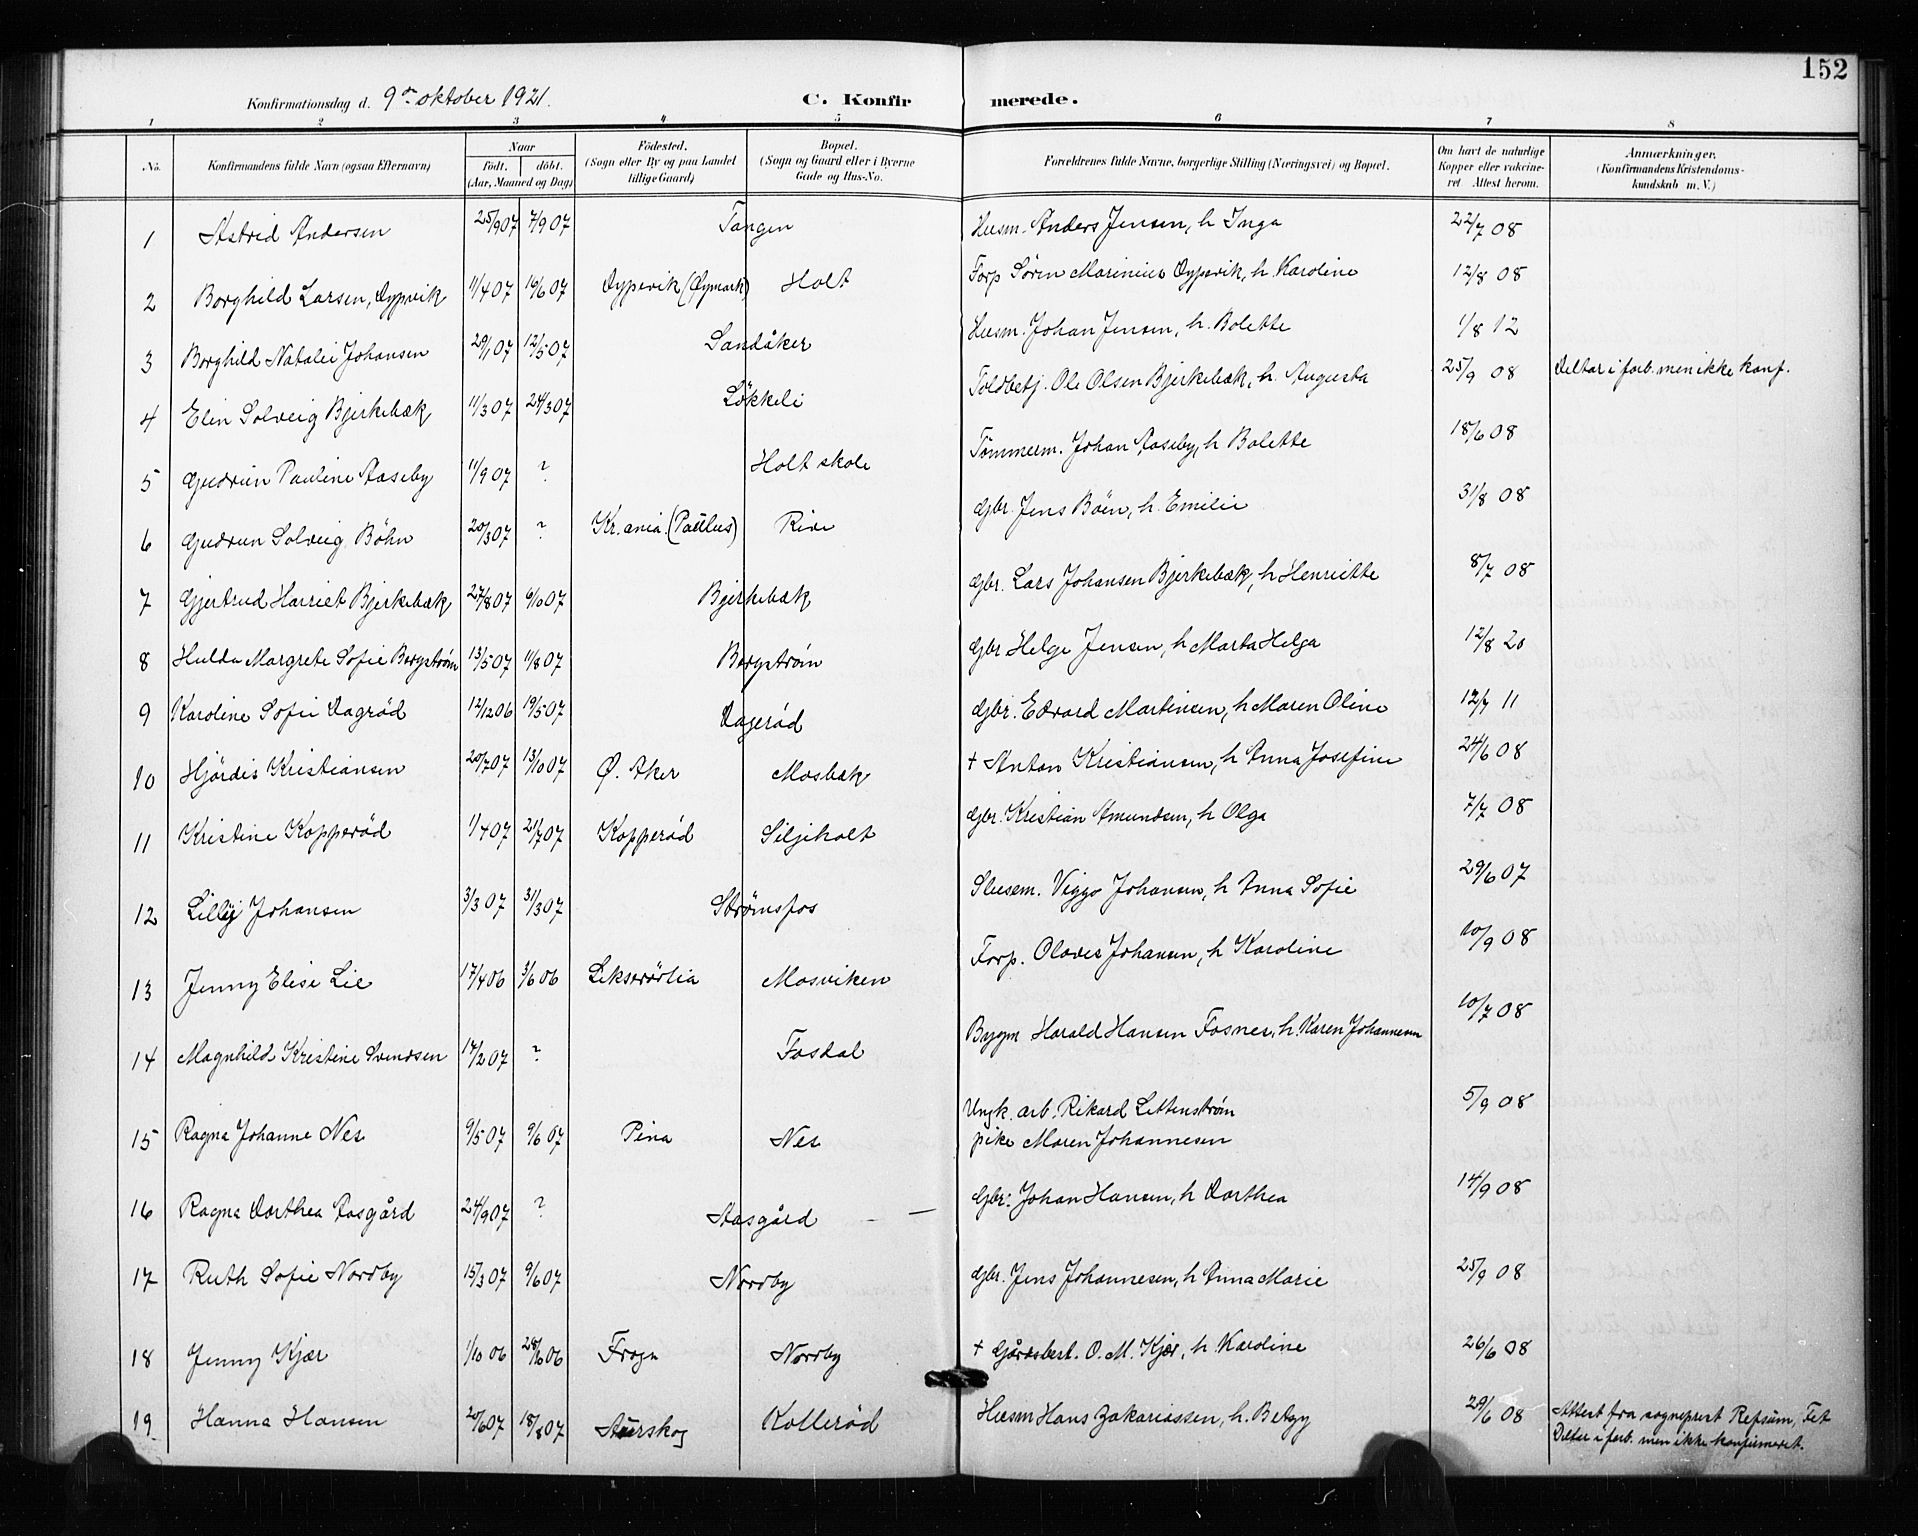 152
Konfirmationsdag d. 9de oktober 1921.
C. Konfirmerede.
1 2 3 4 5 6 7 8
No. Konfirmandens fulde Navn (ogsaa Efternavn) Naar født. døbt. (Aar, Maaned og Dag) Fødested. (Sogn eller By og paa Landet tillige Gaard.) Bopæl. (Sogn og Gaard eller i Byerne Gade og Hus-No. Forældrenes fulde Navne, borgerlige Stilling (Næringsvei) og Bopæl. Om havt de naturlige Kopper eller vakcineret Attest herom. Anmærkninger. (Konfirmandens Kristendomskundskab m. V.)
1 Astrid Andersen 25/907 7/907 Tangen Husm. Anders Jensen, h Inga 22/7 08
2 Borghild Larsen, Dypvik 11/407 16/607 Dypevik (Øymark) Holt Forp Søren Marinius Dypevik, h. Karoline 12/8 08
3 Borghild Natalei Johansen 29/107 12/507 Sandåker Husm. Johan Jensen, h. Bolette 1/8 12
4 Elin Solveig Bjerkebæk 11/307 24/307 Løkkeli Toldbetj. Ole Olsen Bjerkebæk, h. Augusta 25/9 08 Deltar i forb. men ikke konf.
5 Gudrun Pauline Aaseby 11/907 ? Holt skole Tømmerm. Johan Aaseby, h Bolette 18/6 08
6 Gudrun Solveig Bøhn 20/307 ? Kr.ania. (Paulus) Rive Gbr. Jens Bøen, h. Emilie 31/8 08
7 Gjertrud Harriet Bjerkebæk 27/807 6/1007 Bjerkebæk Gbr. Lars Johansen Bjerkebæk, h Henriette 8/7 08
8 Hulda Margrete Sofie Bergstrøm 13/507 11/807 Bergstrøm Gbr Helge Jensen, h Marta Helga 12/8 20
9 Karoline Sofie Dagrød 12/1206 19/507 Dagerød Gbr. Edvard Martinsen, h Maren Oline 12/7 11
10 Hjørdis Kristiansen 20/707 13/1007 Ø. Aker Mosbæk + Anton Kristiansen, h Anna Josefine 24/6 08
11 Kristine Kopperød 1/407 21/707 Kopperød Siljeholt Gbr. Kristian Amundsen, h Olga 7/7 08
12 Lilly Johansen 3/307 31/307 Strømsfos Slusem. Viggo Johansen, h Anna Sofie 29/6 07
13 Jenny Elise Lie 17/406 3/606 Lekserørlia Mosviken Forp. Olaves Johansen, h Karoline 10/9 08
14 Magnhild Kristine Svendsen 14/207 ? Fosdal Bygm Harald Hansen Fosnes, h. Karen Johannesen 10/7 08
15 Ragna Johanne Nes 9/507 9/607 Pina Nes Ungk. arb. Rikard Lettenstrøm 5/9 08
pike Maren Johannesen
16 Ragna Dorthea Aasgård 24/907 ? Aasgård — Gbr: Johan Hansen, h Dorthea 14/9 08
17 Ruth Sofie Nordby 15/307 9/607 Nordby Gbr. Jens Johannesen, h Anna Marie 25/9 08
18 Jenny Kjær 1/1006 28/1006 Frogn Nordby + Gårdsbest. O. M. Kjær, h Karoline 26/6 08
19 Hanna Hansen 20/607 18/807 Aurskog Kollerød Husm Hans Zakariassen, h. Betzy 29/6 08 Attest fra sogneprest Refsum, Fet
Deltar i forb. men ikke konfirmeret.